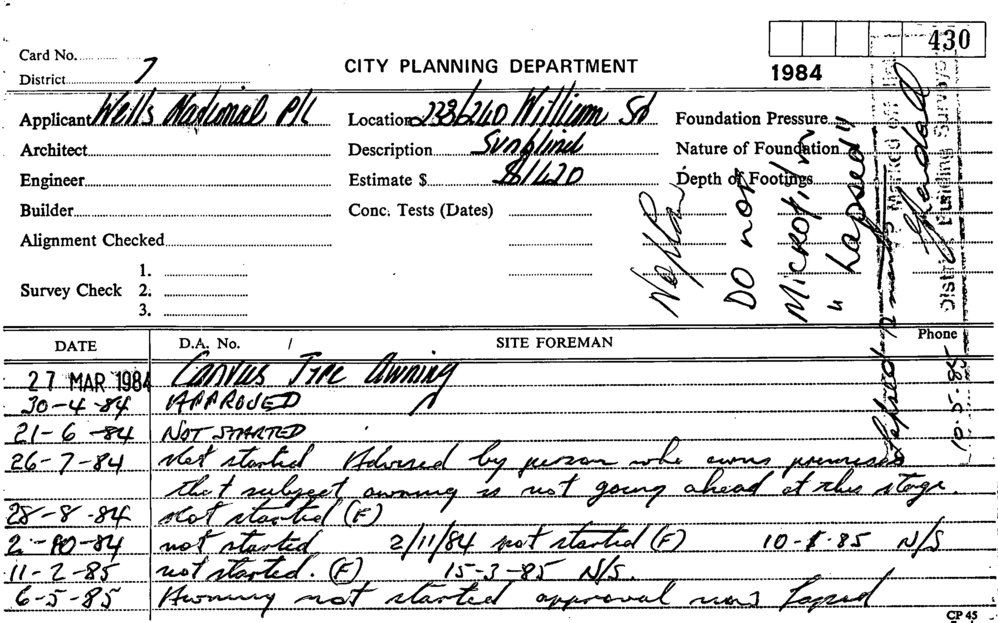 430
Card No.
District 7
CITY PLANNING DEPARTMENT
1984
Applicant Wells National P/L
Location 238/240 William St
Foundation Pressure
Architect
Description Sunblind
Nature of Foundation
Engineer
Estimate $ 1420
Depth of Footings
Builder
Conc. Tests (Dates)
Alignment Checked
1.
Survey Check 2.
3.
No plan
DO not
Microfilm
"Lapsed"
Lapsed 12 months
District Building Surveyor
10.5.85
DATE D.A. No. / SITE FOREMAN Phone
27 MAR 1984 Canvas Type Awning
30-4-84 APPROVED
21-6-84 NOT STARTED
26-7-84 Not started Advised by person who owns premises
that subject awning is not going ahead at this stage.
28-8-84 Not started (F)
2-10-84 not started 2/11/84 not started (F) 10-1-85 N/S
11-2-85 not started. (F) 15-3-85 N/S.
6-5-85 Awning not started approval now lapsed
CP 45